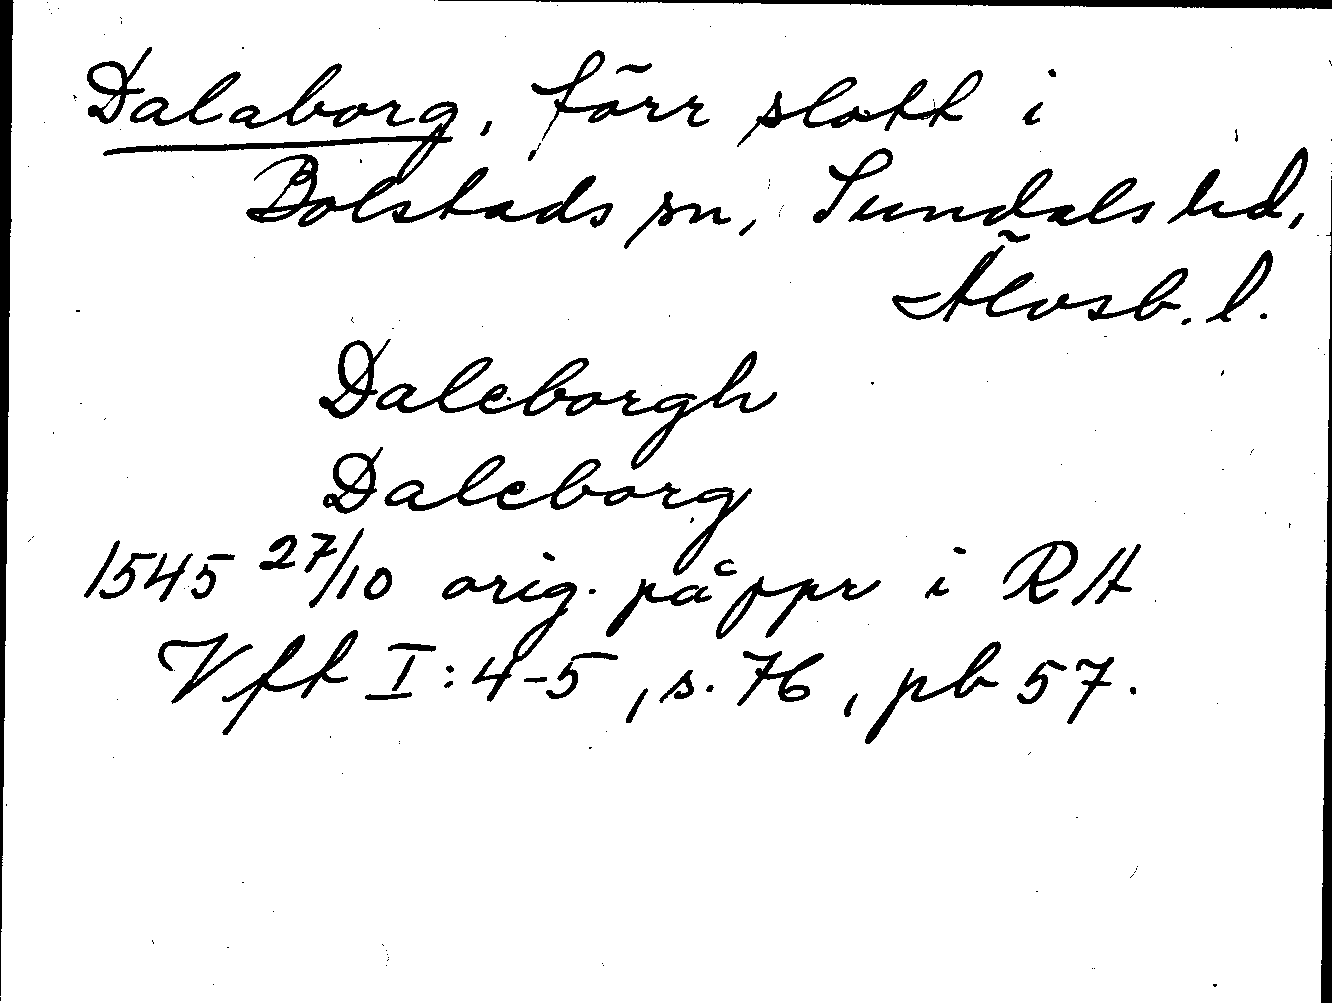 Dalaborg, förr slott i
Bolstads sn, Sundals hd,
Älvsb. l.
Daleborgh
Daleborg
1545 27/10 orig. på ppr i RA
Vft I:4-5, s. 76, pb 57.